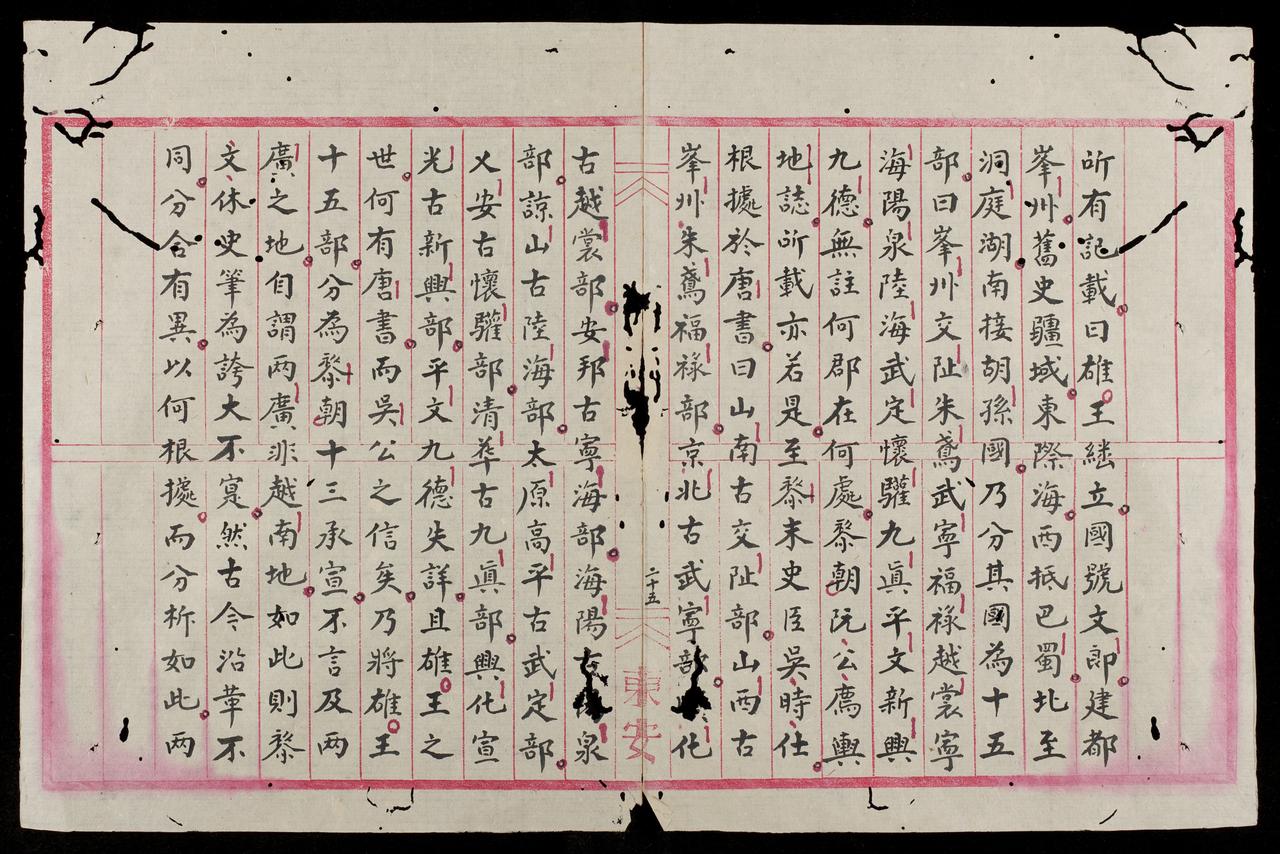 所有記載曰雄王繼立國號文郎建都
峯州舊史疆域東際海西抵巴蜀北至
洞庭湖南接胡孫國乃分其國為十五
部曰峯州交阯朱鳶武寧福祿越裳寧
海陽泉陸海武定懷驩九眞平文新興
九德無註何郡在何處黎朝阮公廌輿
地誌所載亦若是至黎末史臣吳時仕
根據於唐書曰山南古交阯部山西古
峯州朱鳶福祿部京北古武寧部化
二十五
東安
古越裳部安邦古寧海部海陽古陽泉
部諒山古陸海部太原高平古武定部
乂安古懷驩部清華古九眞部興化宣
光古新興部平文九德失詳且雄王之
世何有唐書而吳公之信矣乃將雄王
十五部分為黎朝十三承宣不言及两
廣之地自謂两廣非越南地如此則黎
文休史筆為誇大不寔然古今沿革不
同分合有異以何根據而分析如此两